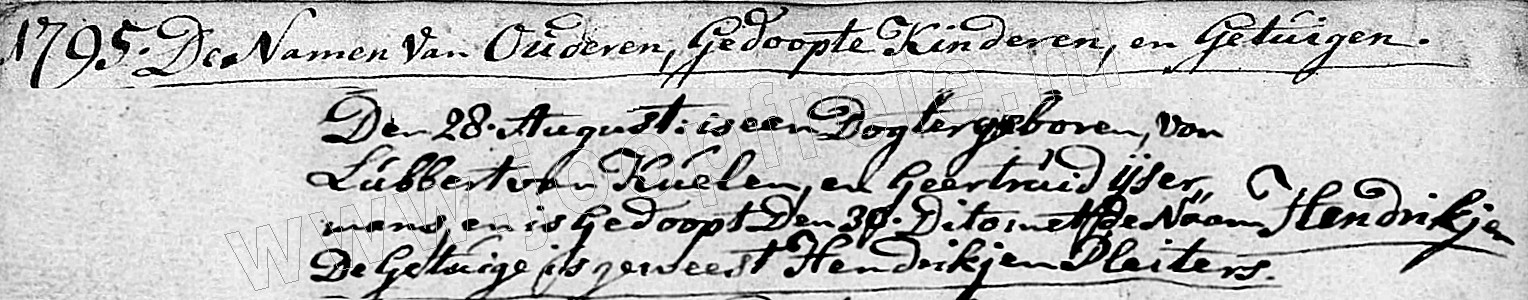 1795. De Namen Van Ouderen, Gedoopte Kinderen, en Getuigen.
Den 28. August: is een Dogter geboren, von
Lúbbert van Kúelen, en Geertruid ijser,,
mans, en is Gedoopt Den 30. Dito met de Naam Hendrikjen
De Getuige is geweest Hendrikjen Pleiters.
www.joopfreje.nl